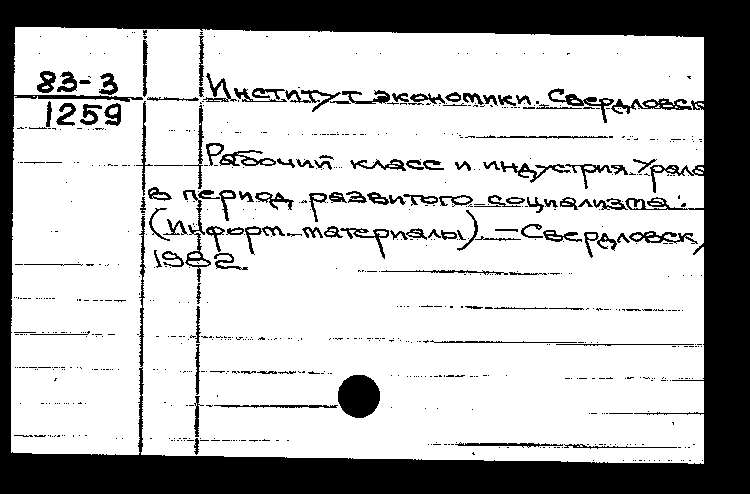 83-3
1259
Институт экономики. Свердловск
Рабочий класс и индустрия Урала
в период развитого социализма:
(Информ. материалы). — Свердловск,
1982.